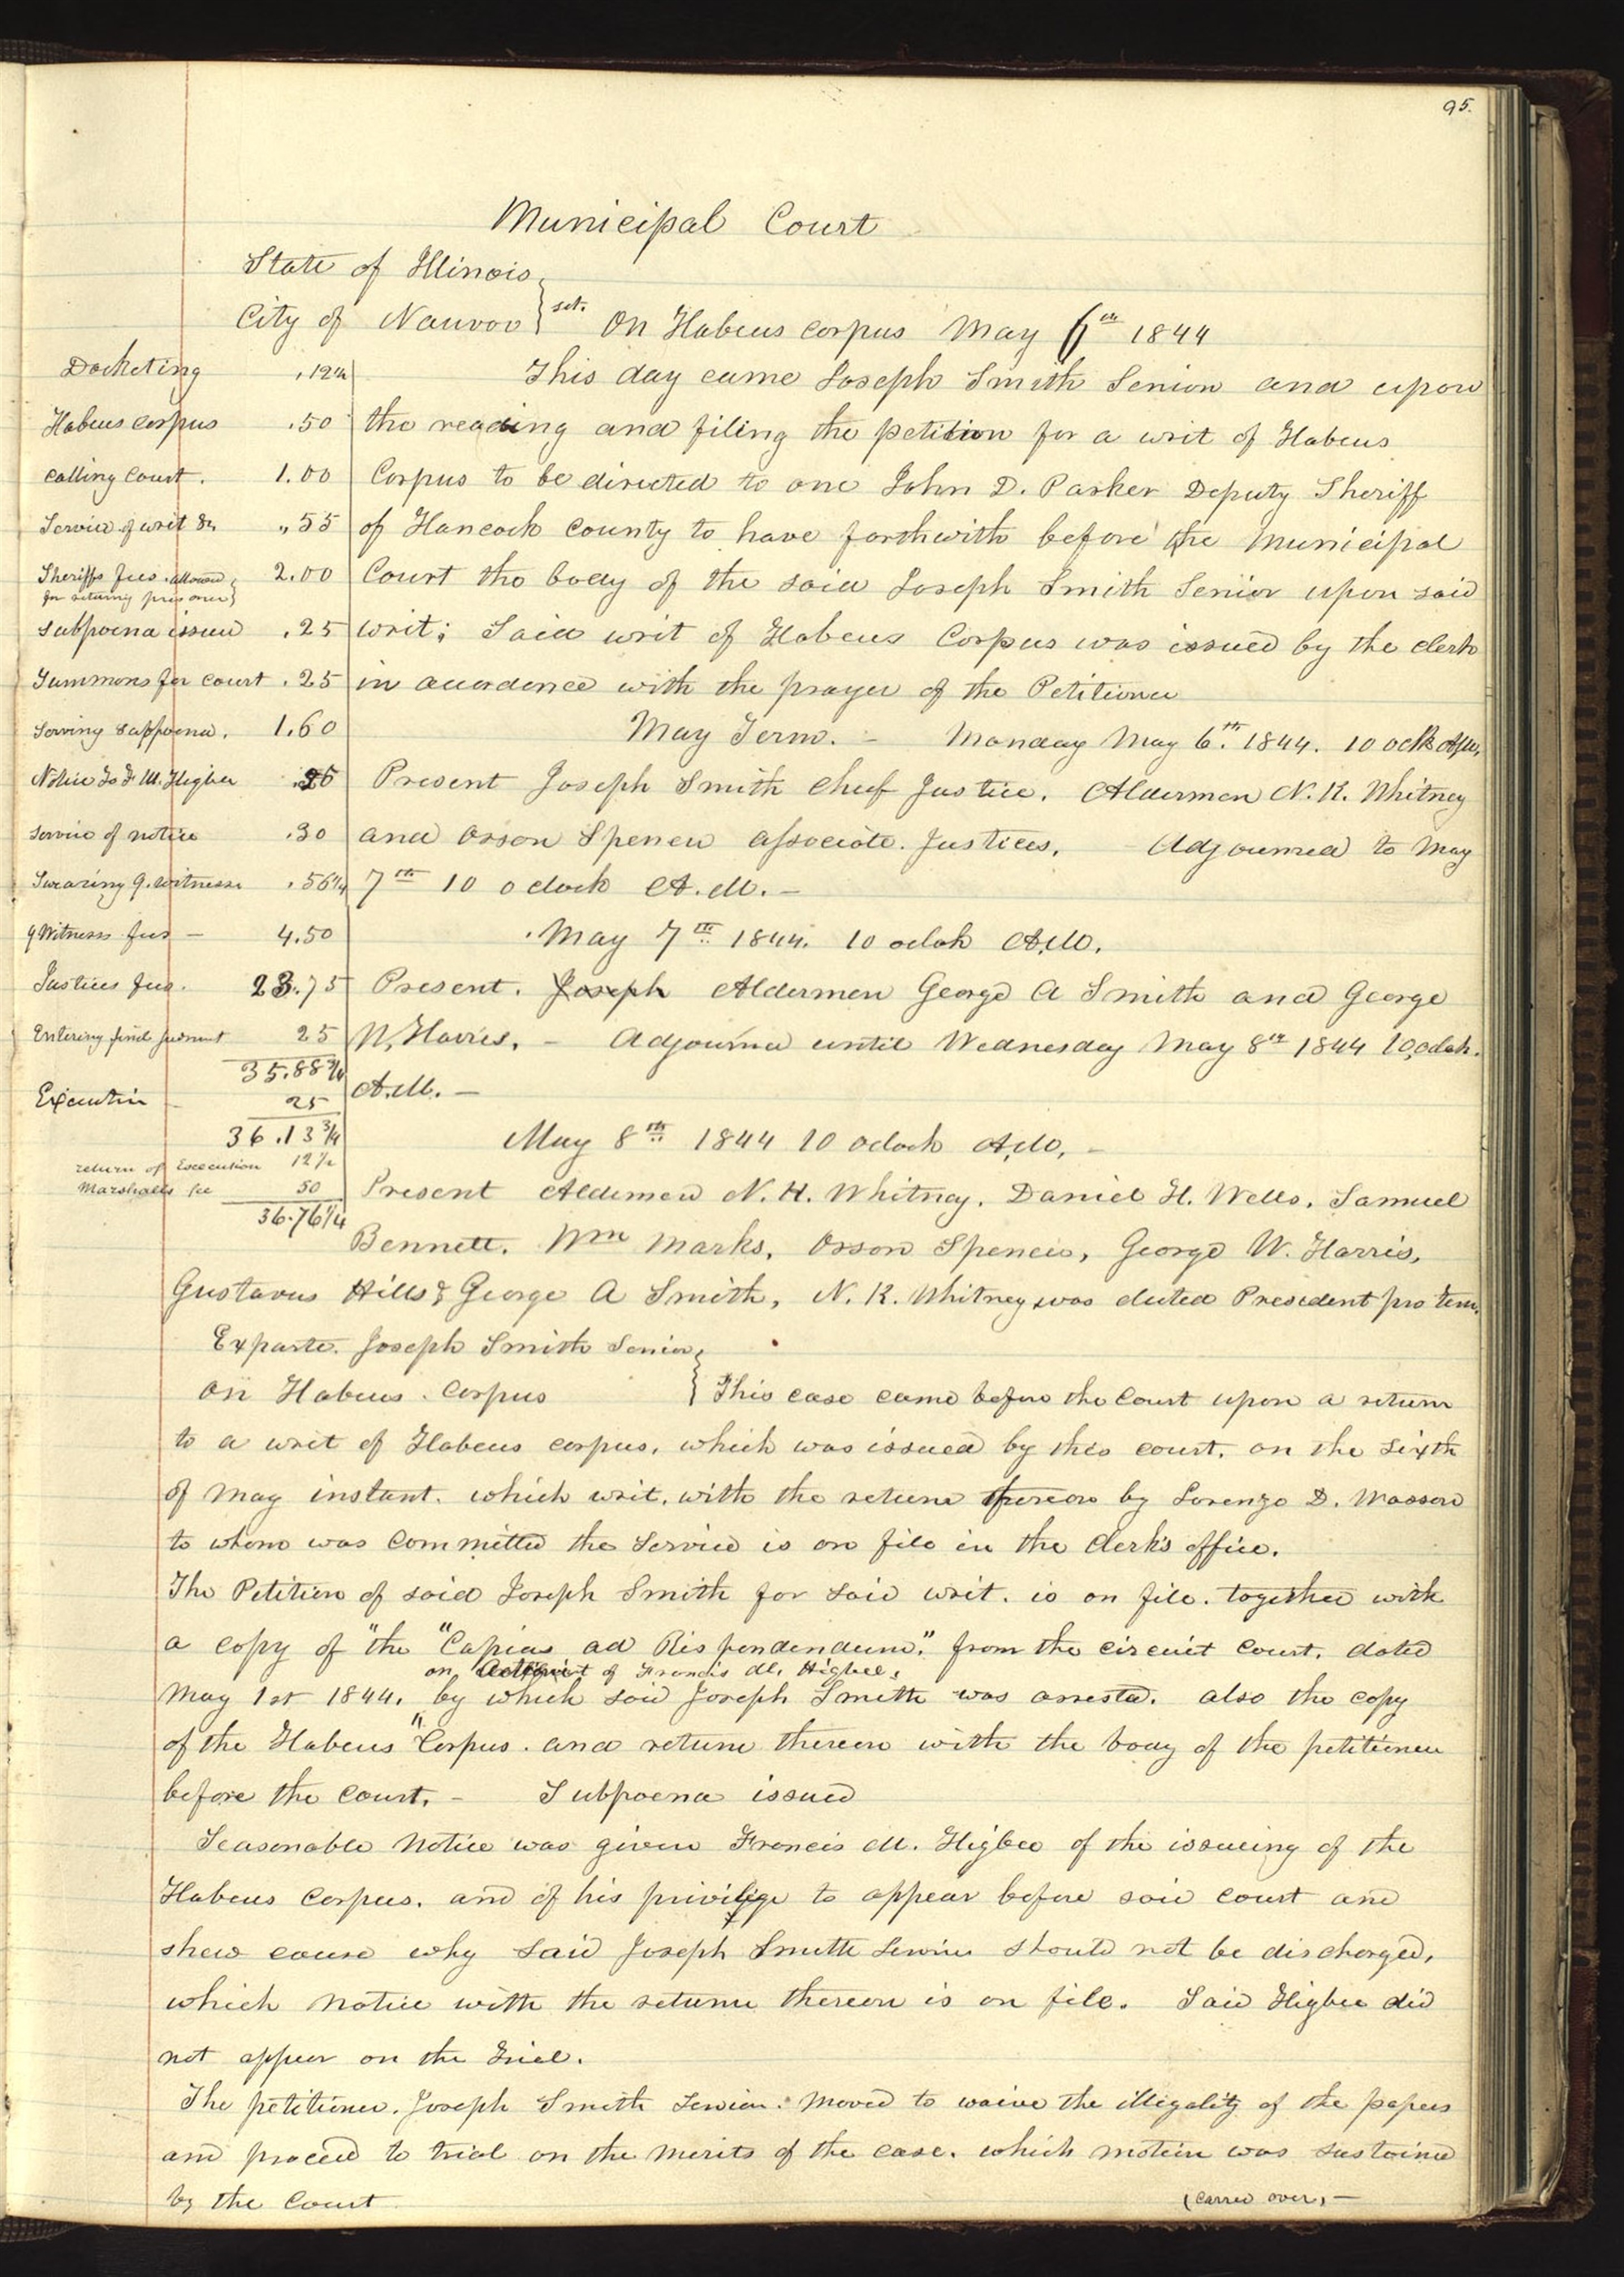 95.
Municipal Court
State of Illinois
City of Nauvoo } sct. On Habeus Corpus May 6th 1844
Docketing .12½ This day came Joseph Smith Senior and upon
Habeus corpus .50 the reading and filing the petition for a writ of Habeus
calling Court. 1.00 Corpus to be directed to one John D. Parker Deputy Sheriff
Service of writ &c .55 of Hancock County to have forthwith before the Municipal
Sheriffs fees allowed 2.00 Court the body of the said Joseph Smith Senior upon said
for returning prisoner }
Subpoena issued .25 writ; Said writ of Habeus Corpus was issued by the clerk
Summons for court .25 in accordence with the prayer of the Petitioner
Serving Suppoena. 1.60 May Term. – Monday May 6th. 1844. 10 oclk A.M.
Notice to F M. Higbee .25 Present Joseph Smith Chief Justice. Aldermen N. K. Whitney
Service of notice .30 and Orson Spencer associate Justices. Adjourned to May
Swearing 9. witnesses .56¼ 7th 10 o clock A.M. –
9 Witness fees – 4.50 May 7th 1844. 10 oclok A.M.
Justices fees. 23.75 Present. Joseph Aldermen George A Smith and George
Entering final Judment 25 W. Harris. – Adjourned until Wednesday May 8th 1844 10 oclok.
35.88¾ A.M. –
Execution – 25
36.13¾ May 8th 1844 10 oclock A.M. –
return of Excecution 12½
Marshalls fee 50 Present Aldermen N. K. Whitney. Daniel H. Wells. Samuel
36.76¼
Bennett. Wm Marks. Orson Spencer, George W. Harris,
Gustavus Hills & George A Smith, N. K. Whitney was elected President pro tem.
Exparte. Joseph Smith Senior
on Habeus. Corpus } This case came before the Court upon a return
to a writ of Habeus corpus, which was issued by this court, on the sixth
of May instant. which writ. with the return thereon by Lorenzo D. Wasson
to whom was committed the Service is on file in the Clerk's office.
The Petition of said Joseph Smith for said writ. is on file. together with
a copy of "the "Capias ad Rispondendum." from the circuit Court. dated
on of Francis M. Higbee,
May 1st 1844. by which said Joseph Smith was arrested. also the copy
of the Habeus "Corpus. and return thereon with the body of the petitioner
before the Court. – Subpoena issued
Seasonable Notice was given Francis M. Higbee of the issueing of the
Habeus Corpus. and of his privilige to appear before said court and
shew cause why said Joseph Smith Senior should not be discharged,
which notice with the return thereon is on file. Said Higbee did
not appear on the trial.
The petitioner. Joseph Smith Senior. moved to waive the illegality of the papers
and proceed to trial on the merits of the case. which motion was sustained
by the Court
(Carred over, –